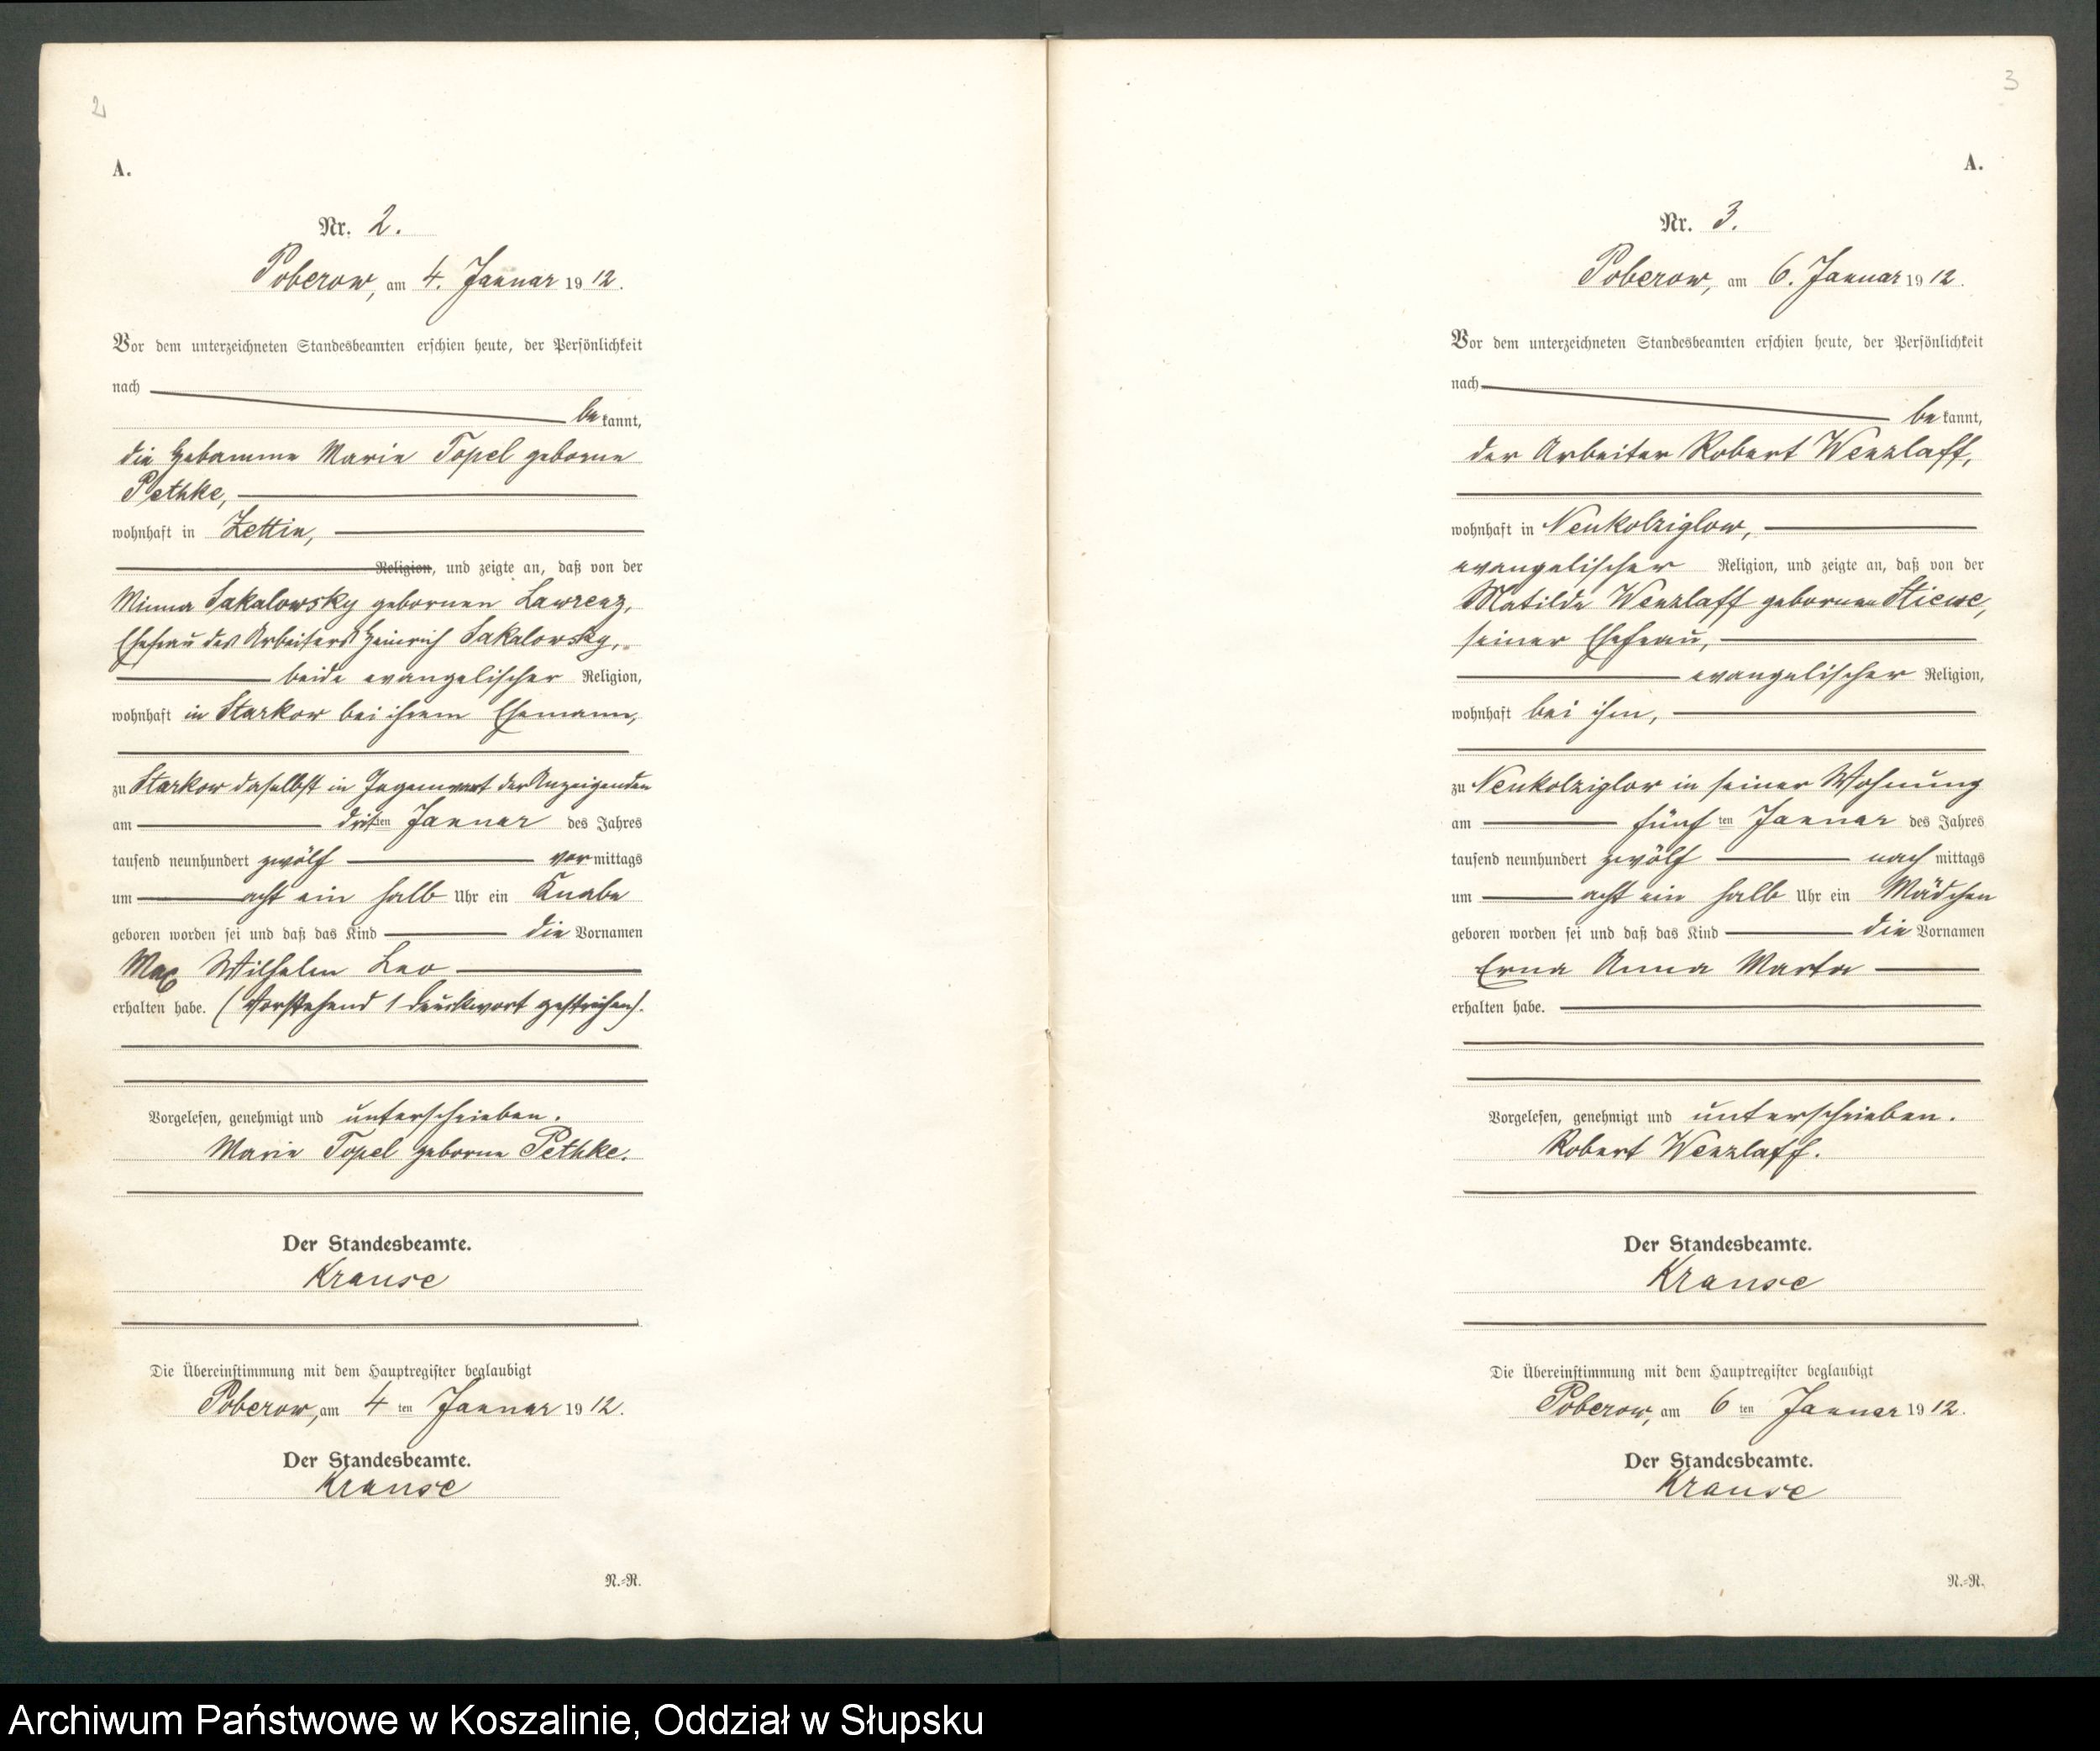 2
A.
Nr. 2.
Poberow, am 4. Januar 1912.
Vor dem unterzeichneten Standesbeamten erschien heute, der Persönlichkeit
nach
be kannt,
die Hebamme Marie Topel geborne
Pethke,
wohnhaft in Zettin,
Religion, und zeigte an, daß von der
Minna Sakalowsky gebornen Lawrenz,
Ehefrau des Arbeiters Heinrich Sakalowsky,
beide evangelischer Religion,
wohnhaft in Starkow bei ihrem Ehemann,
zu Starkow daselbst in Gegenwart der Anzeigenden
am dritten Januar des Jahres
tausend neunhundert zwölf vormittags
um acht ein halb Uhr ein Knabe
geboren worden sei und daß das Kind die Vornamen
Max Wilhelm Leo
erhalten habe. (Vorstehend 1 Druckwort gestrichen).
Vorgelesen, genehmigt und unterschrieben.
Marie Topel geborne Pethke.
Der Standesbeamte.
Krause
Die Übereinstimmung mit dem Hauptregister beglaubigt
Poberow, am 4ten Januar 1912.
Der Standesbeamte.
Krause
N.=R.
3
A.
Nr. 3.
Poberow, am 6. Januar 1912.
Vor dem unterzeichneten Standesbeamten erschien heute, der Persönlichkeit
nach
be kannt,
der Arbeiter Robert Wenzlaff,
wohnhaft in Neukolziglow,
evangelischer Religion, und zeigte an, daß von der
Matilde Wenzlaff gebornen Stiewe,
seiner Ehefrau,
evangelischer Religion,
wohnhaft bei ihm,
zu Neukolziglow in seiner Wohnung
am fünften Januar des Jahres
tausend neunhundert zwölf nach mittags
um acht ein halb Uhr ein Mädchen
geboren worden sei und daß das Kind die Vornamen
Erna Anna Marta
erhalten habe.
Vorgelesen, genehmigt und unterschrieben.
Robert Wenzlaff.
Der Standesbeamte.
Krause
Die Übereinstimmung mit dem Hauptregister beglaubigt
Poberow, am 6ten Januar 1912.
Der Standesbeamte.
Krause
N.=R.
Archiwum Państwowe w Koszalinie, Oddział w Słupsku